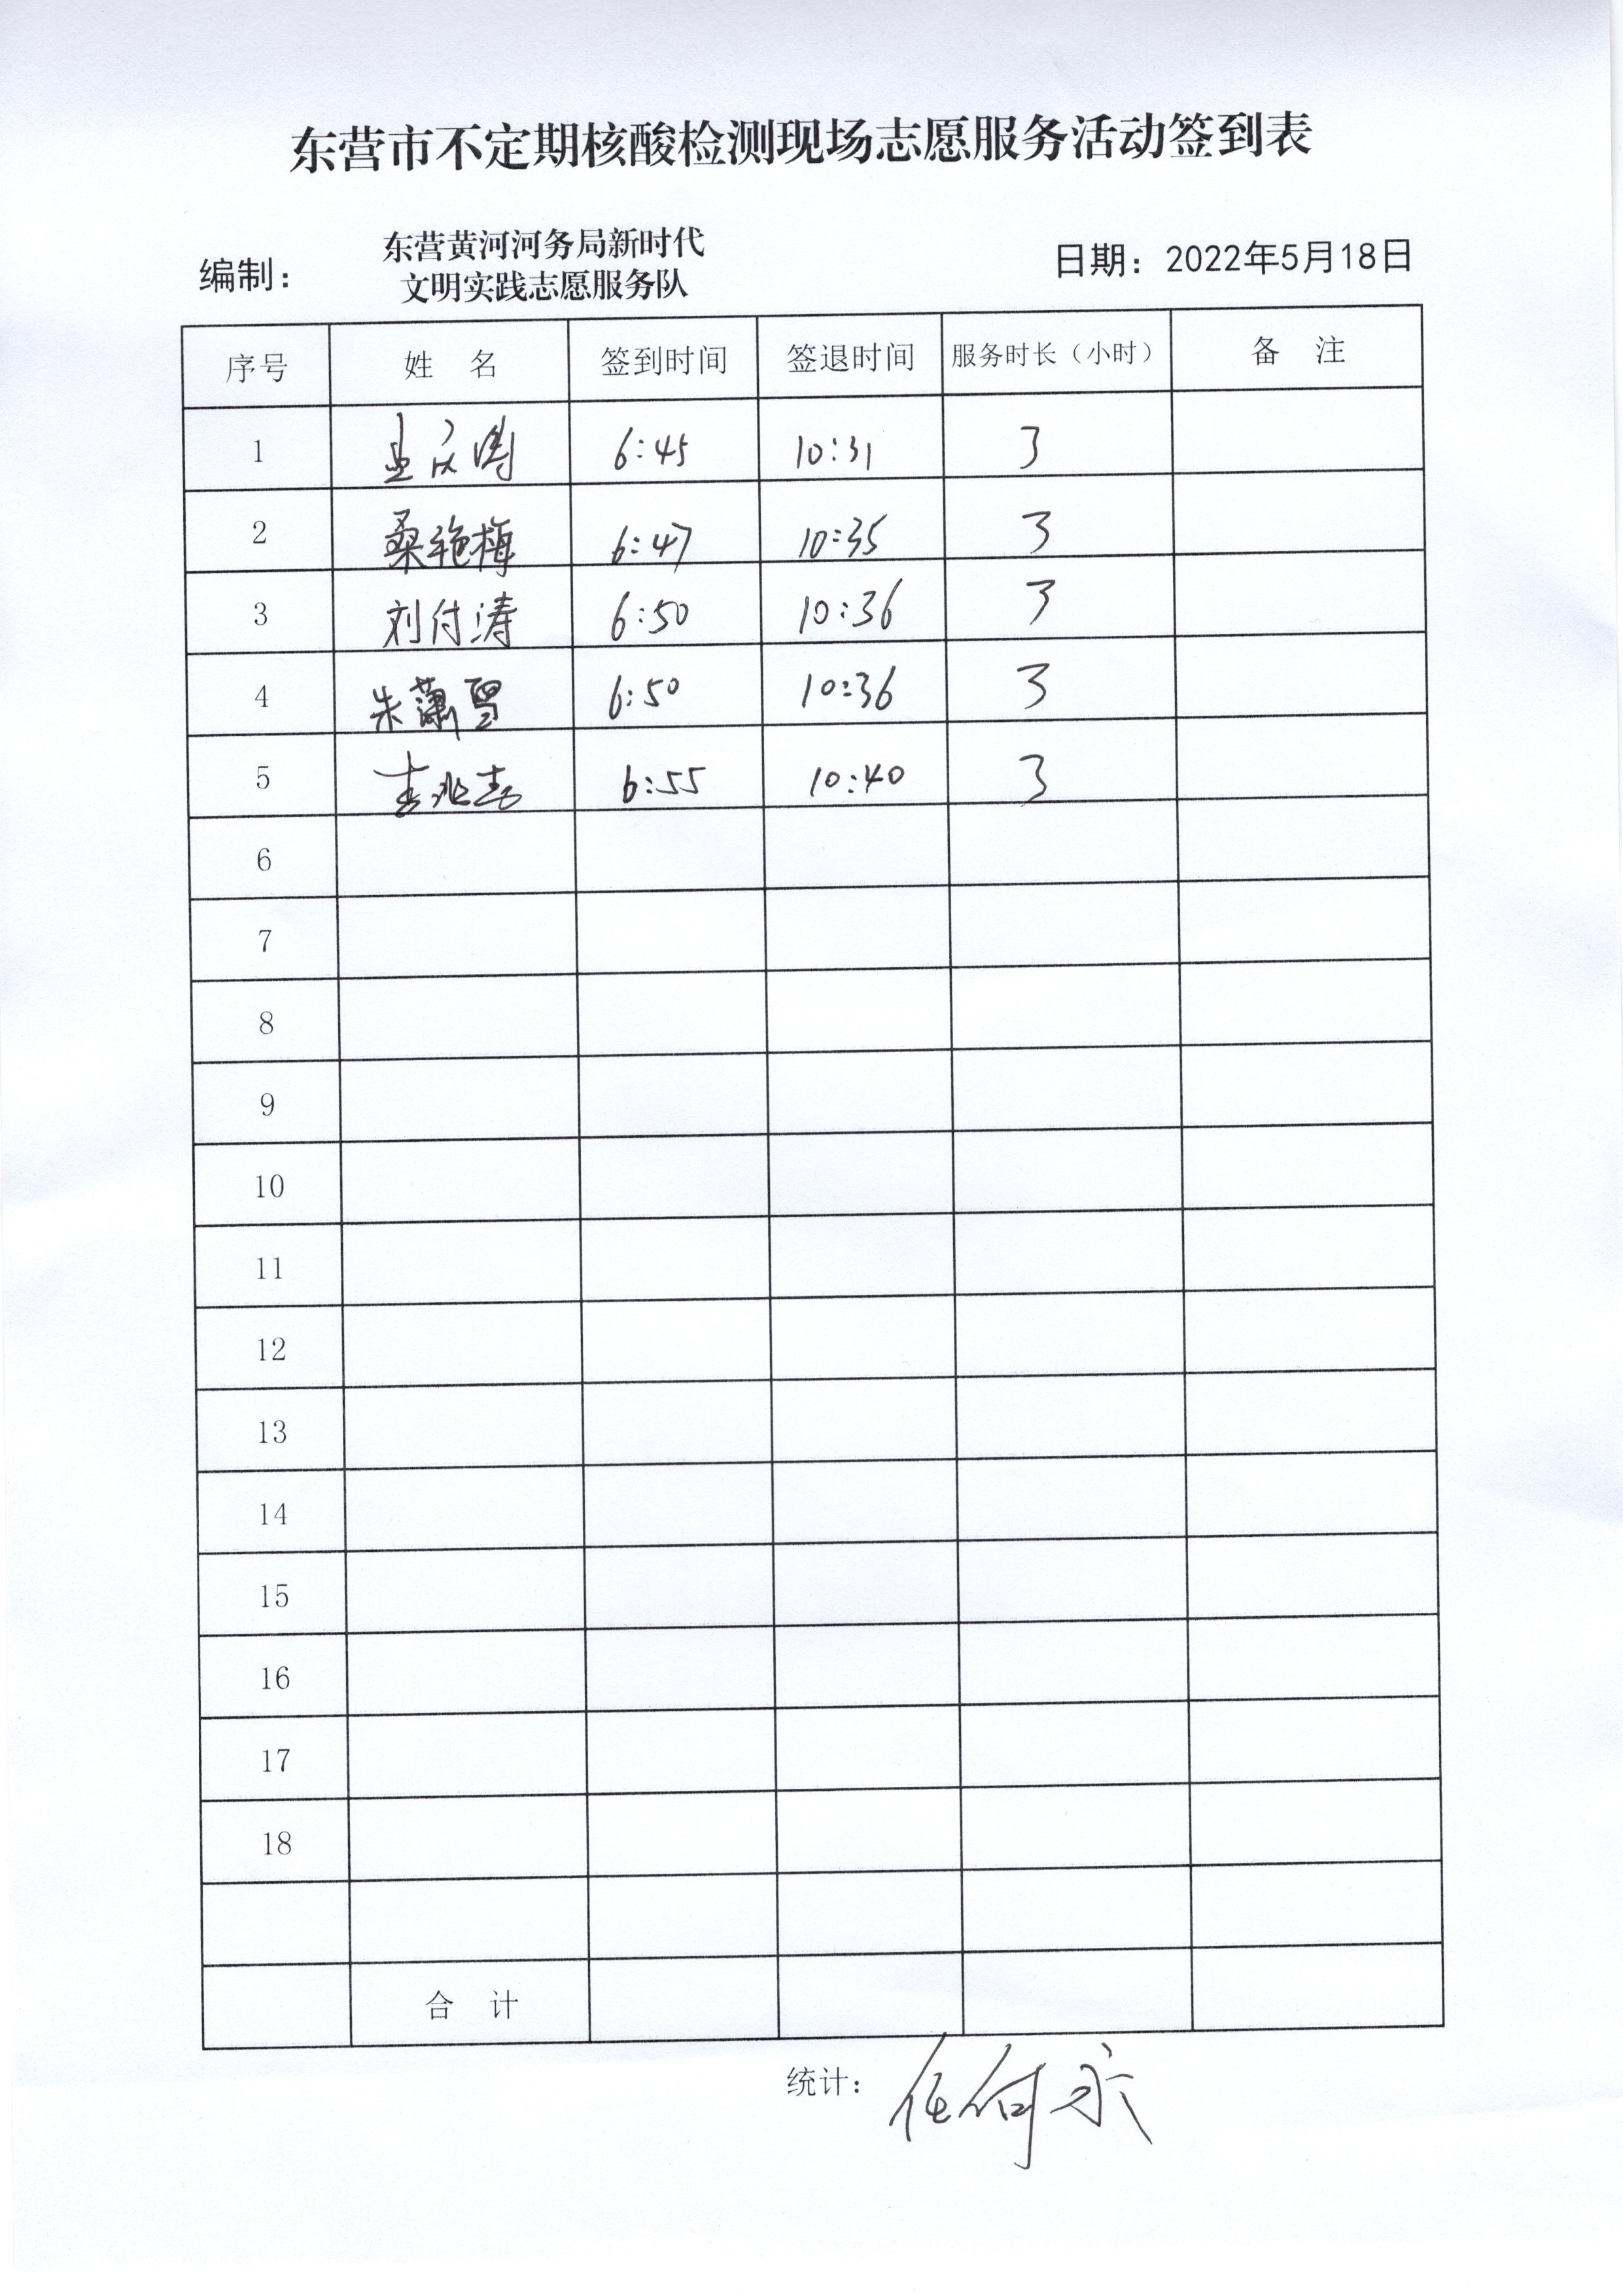 东营市不定期核酸检测现场志愿服务活动签到表
编制： 东营黄河河务局新时代 日期：2022年5月18日
文明实践志愿服务队
序号 姓 名 签到时间 签退时间 服务时长（小时） 备 注
1 6:45 10:31 3
2 桑艳梅 6:47 10:35 3
3 刘付涛 6:50 10:36 3
4 朱 6:50 10:36 3
5 6:55 10:40 3
6
7
8
9
10
11
12
13
14
15
16
17
18
合 计
统计：